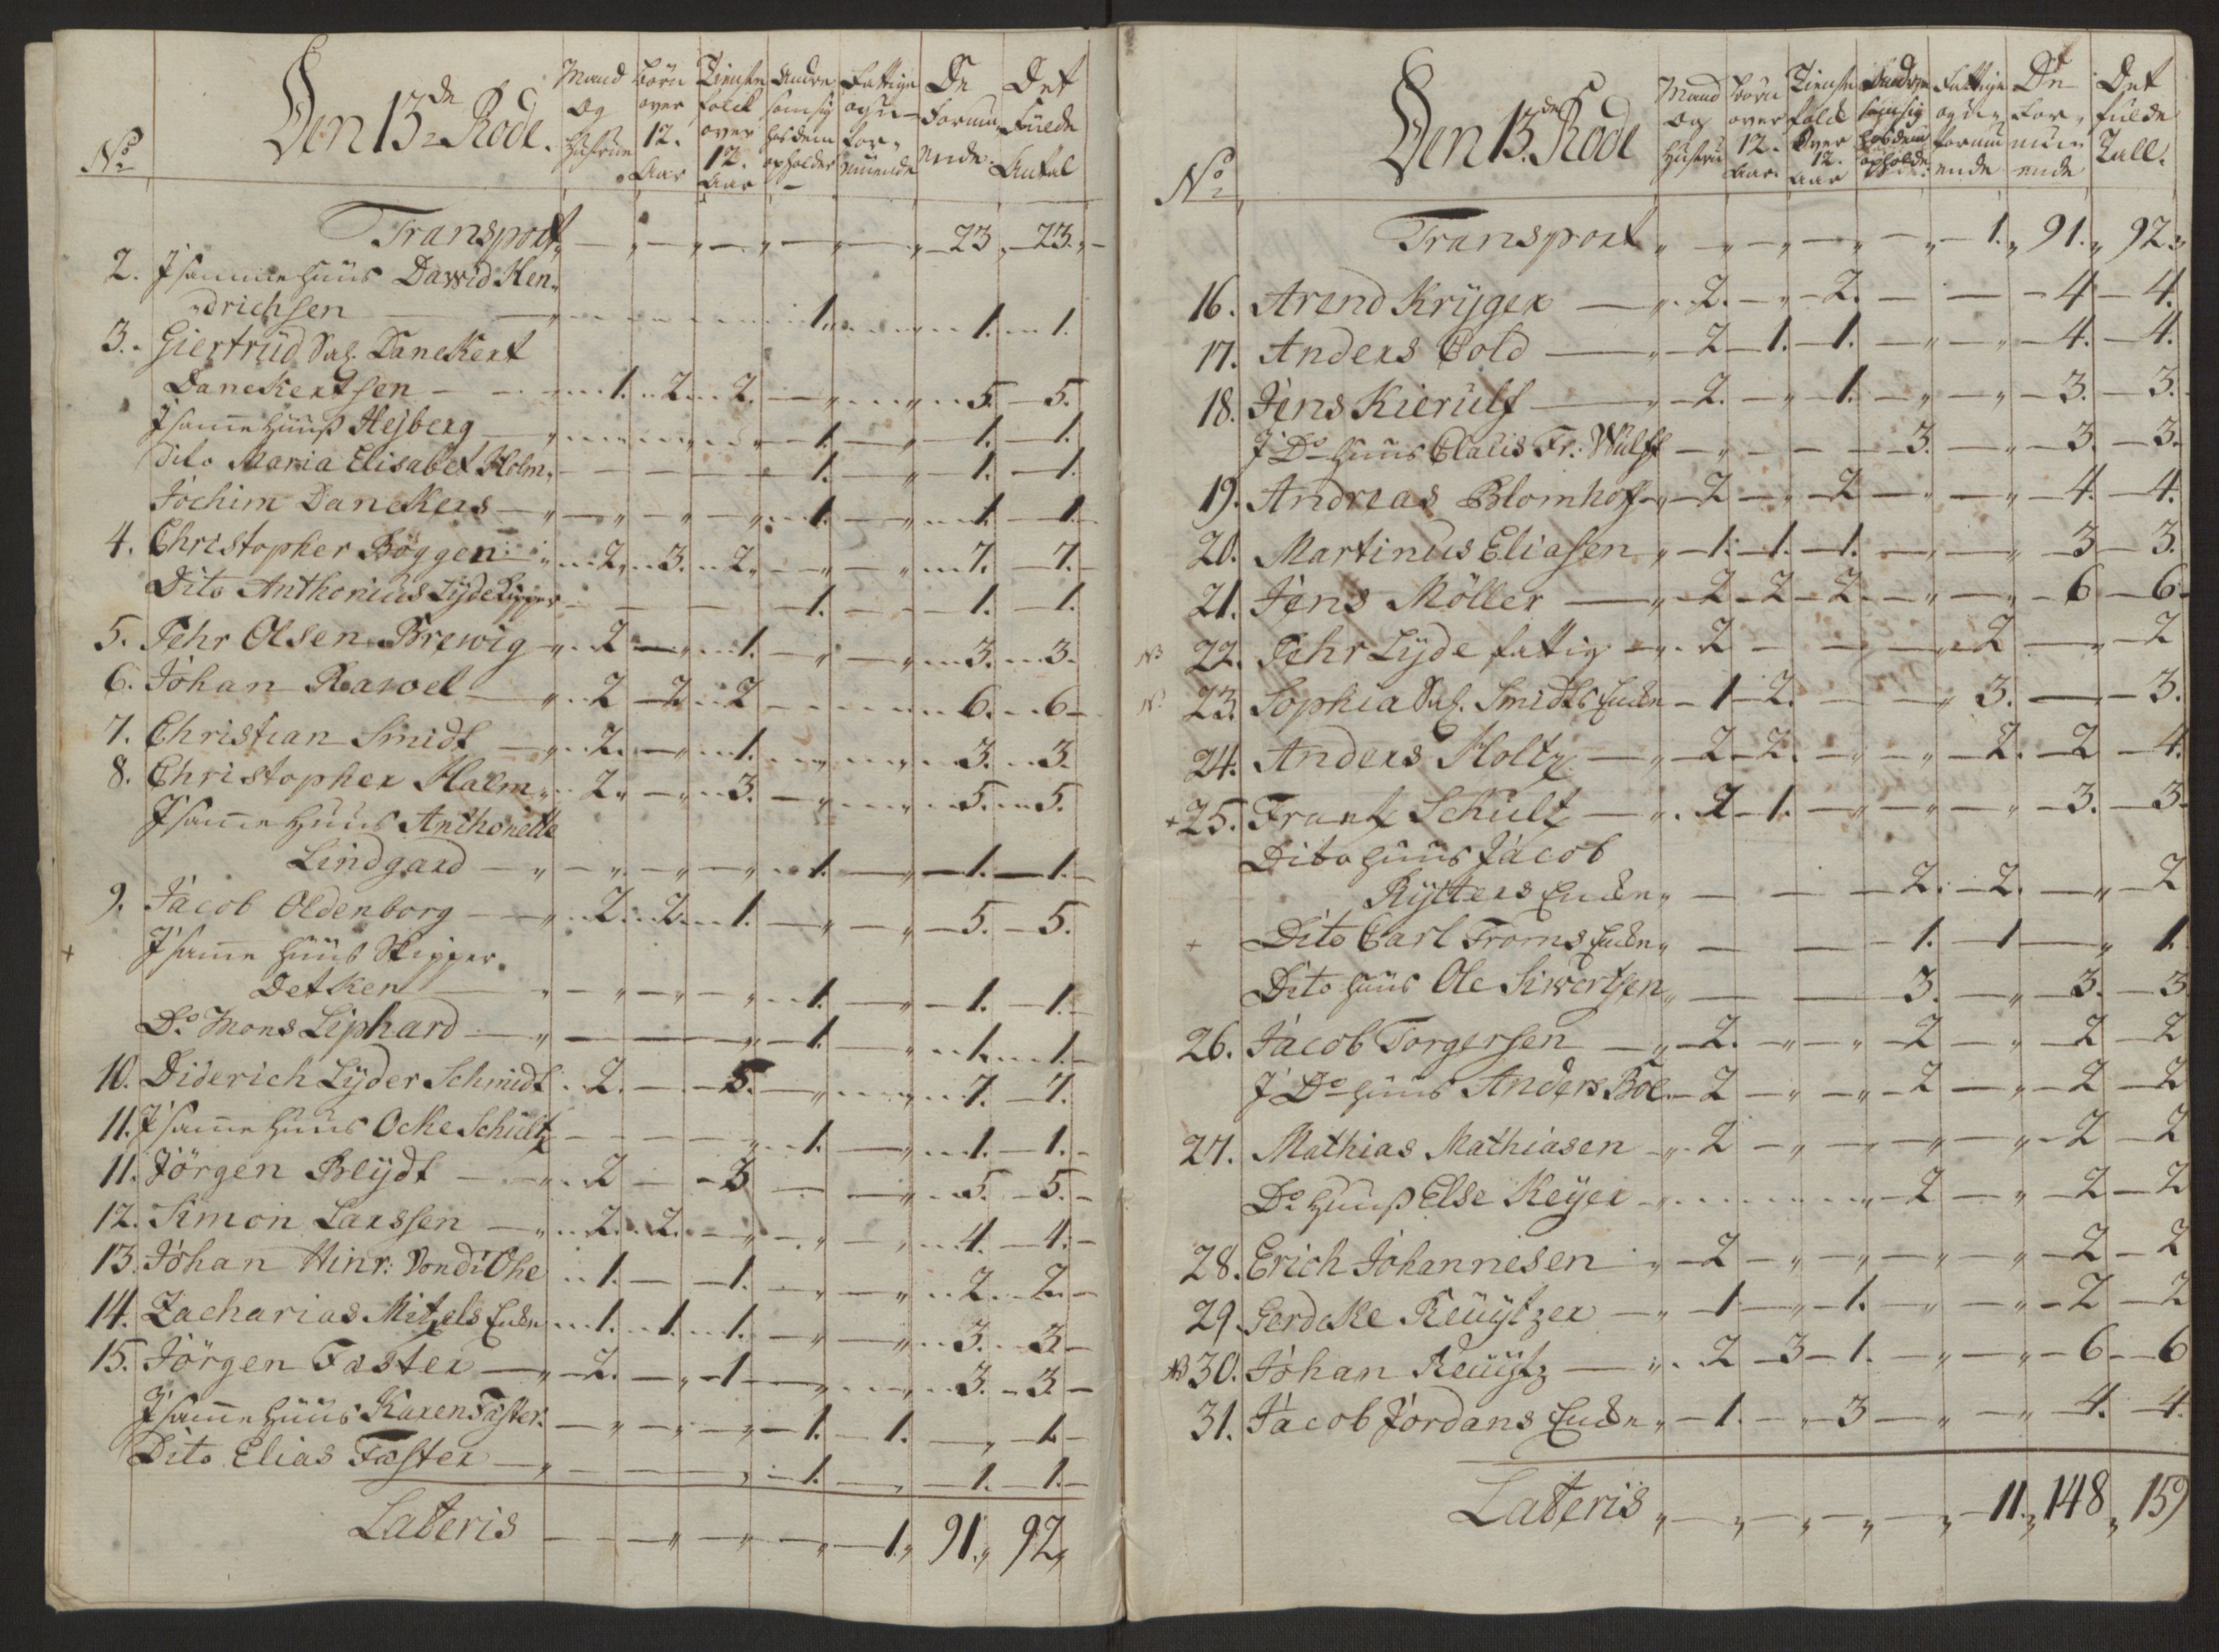 No Den 13de Rode. Mand og Hustrue Børn over 12. Aar Tienste folck over 12. Aar Andre som sig hos dem opholder Fattige og u-formuende De Formuende. Det Fulde Antal
Transport „ — „ — „ — „ — „ 23 „ 23. „
2. J samme Huus Dawid Hen-
drichsen — 1. 1. 1.
3. Giertrud Sal. Danekert
Danekertsen — 1. 2. 2. — 5. 5.
J samme Huus Hejberg — 1. — 1. 1.
Dito Maria Elisabet Holm. — 1. — 1. 1.
Jochim Danekers — 1. — 1. 1.
4. Christopher Böggen 2. 3. 2. — 7. 7.
Dito Anthonius Lyde Lypper — 1. — 1. 1.
5. Fehr Olsen Brewig 2 — 1. — 3. 3.
6. Johan Rawel — 2 2 2 — 6. 6
7. Christian Smidt — 2. — 1. — 3. 3
8. Christopher Halm 2. — 3. — 5. 5.
J samme Huus Anthonette
Lindgard — 1. — 1. 1.
9. Jacob Oldenborg — 2. 2. 1. — 5. 5.
+ J samme Huus Skipper
Detken — 1. — 1. 1.
Do Mons Liphard — 1. — 1. 1.
10. Diderich Lyder Schmidt 2. — 5. — 7. 7.
11. J samme Huus Ocke Schultz — 1. — 1. 1.
11. Jörgen Blydt — 2 — 3 — 5. 5.
12. Simon Larssen — 2. 2. — 4. 4.
13. Johan Hinr: Von di Ohe 1. — 1. — 2. 2.
14. Zacharias Mitzels Encke 1. 1. 1. — 3. 3
15. Jörgen Faster — 2. — 1 — 3. 3.
J samme Huus Karen Faster. — 1. 1. — 1.
Dito Elias Faster — 1. — 1. 1.
Lateris — 1. „ 91. „ 92 „
No Den 13de Rode Mand og Hustru Børn over 12. Aar Tienste folck Over 12. Aar Andre som sig hos dem opholde. Fattige og u-formuende De Formuende Det fulde Tall.
Transport „ — „ — 1. „ 91. „ 92. „
16. Arend Kryger — 2. — 2. — 4 4.
17. Anders Cold — 2 1. 1. — 4. 4.
18. Jens Kierulf — 2. — 1. — 3. 3.
J Do Huus Claus Fr: Wulff — 3. — 3. 3.
19. Andreas Blomhof — 2 — 2 — 4. 4.
20. Martinus Eliasen — 1. 1. 1. — 3 3.
21. Jens Möller — 2 2 2 — 6 6
NB 22. Fehr Lyde fattig — 2 — 2 — 2
NB 23. Sophia Sal. Smidts Encke — 1 2. — 3. — 3.
24. Anders Holtz — 2 2. — 2. 2 4.
+ 25. Frantz Schultz — 2 1. — 3. 3
Dito Huus Jacob
Rytters Encke — 2. 2. — 2
+ Dito Carl Froms Encke — 1. 1 — 1
Dito Huus Ole Siwertsen — 3. — 3. 3
26. Jacob Torgersen — 2. — 2 — 2 2
J Do Huus Anders Boe — 2 — 2 — 2 2
27. Mathias Mathiasen — 2 — 2 2
Do Huus Else Keyer — 2 — 2 2
28. Erich Johannesen — 2 — 2 2
29. Gerdcke Reuytzer — 1 — 1. — 2 2
NB 30. Johan Reuytz — 2 3 1. — 6 6
31. Jacob Jordans Encke — 1. — 3 — 4. 4.
Lateris „ — 11. „ 148 „ 159